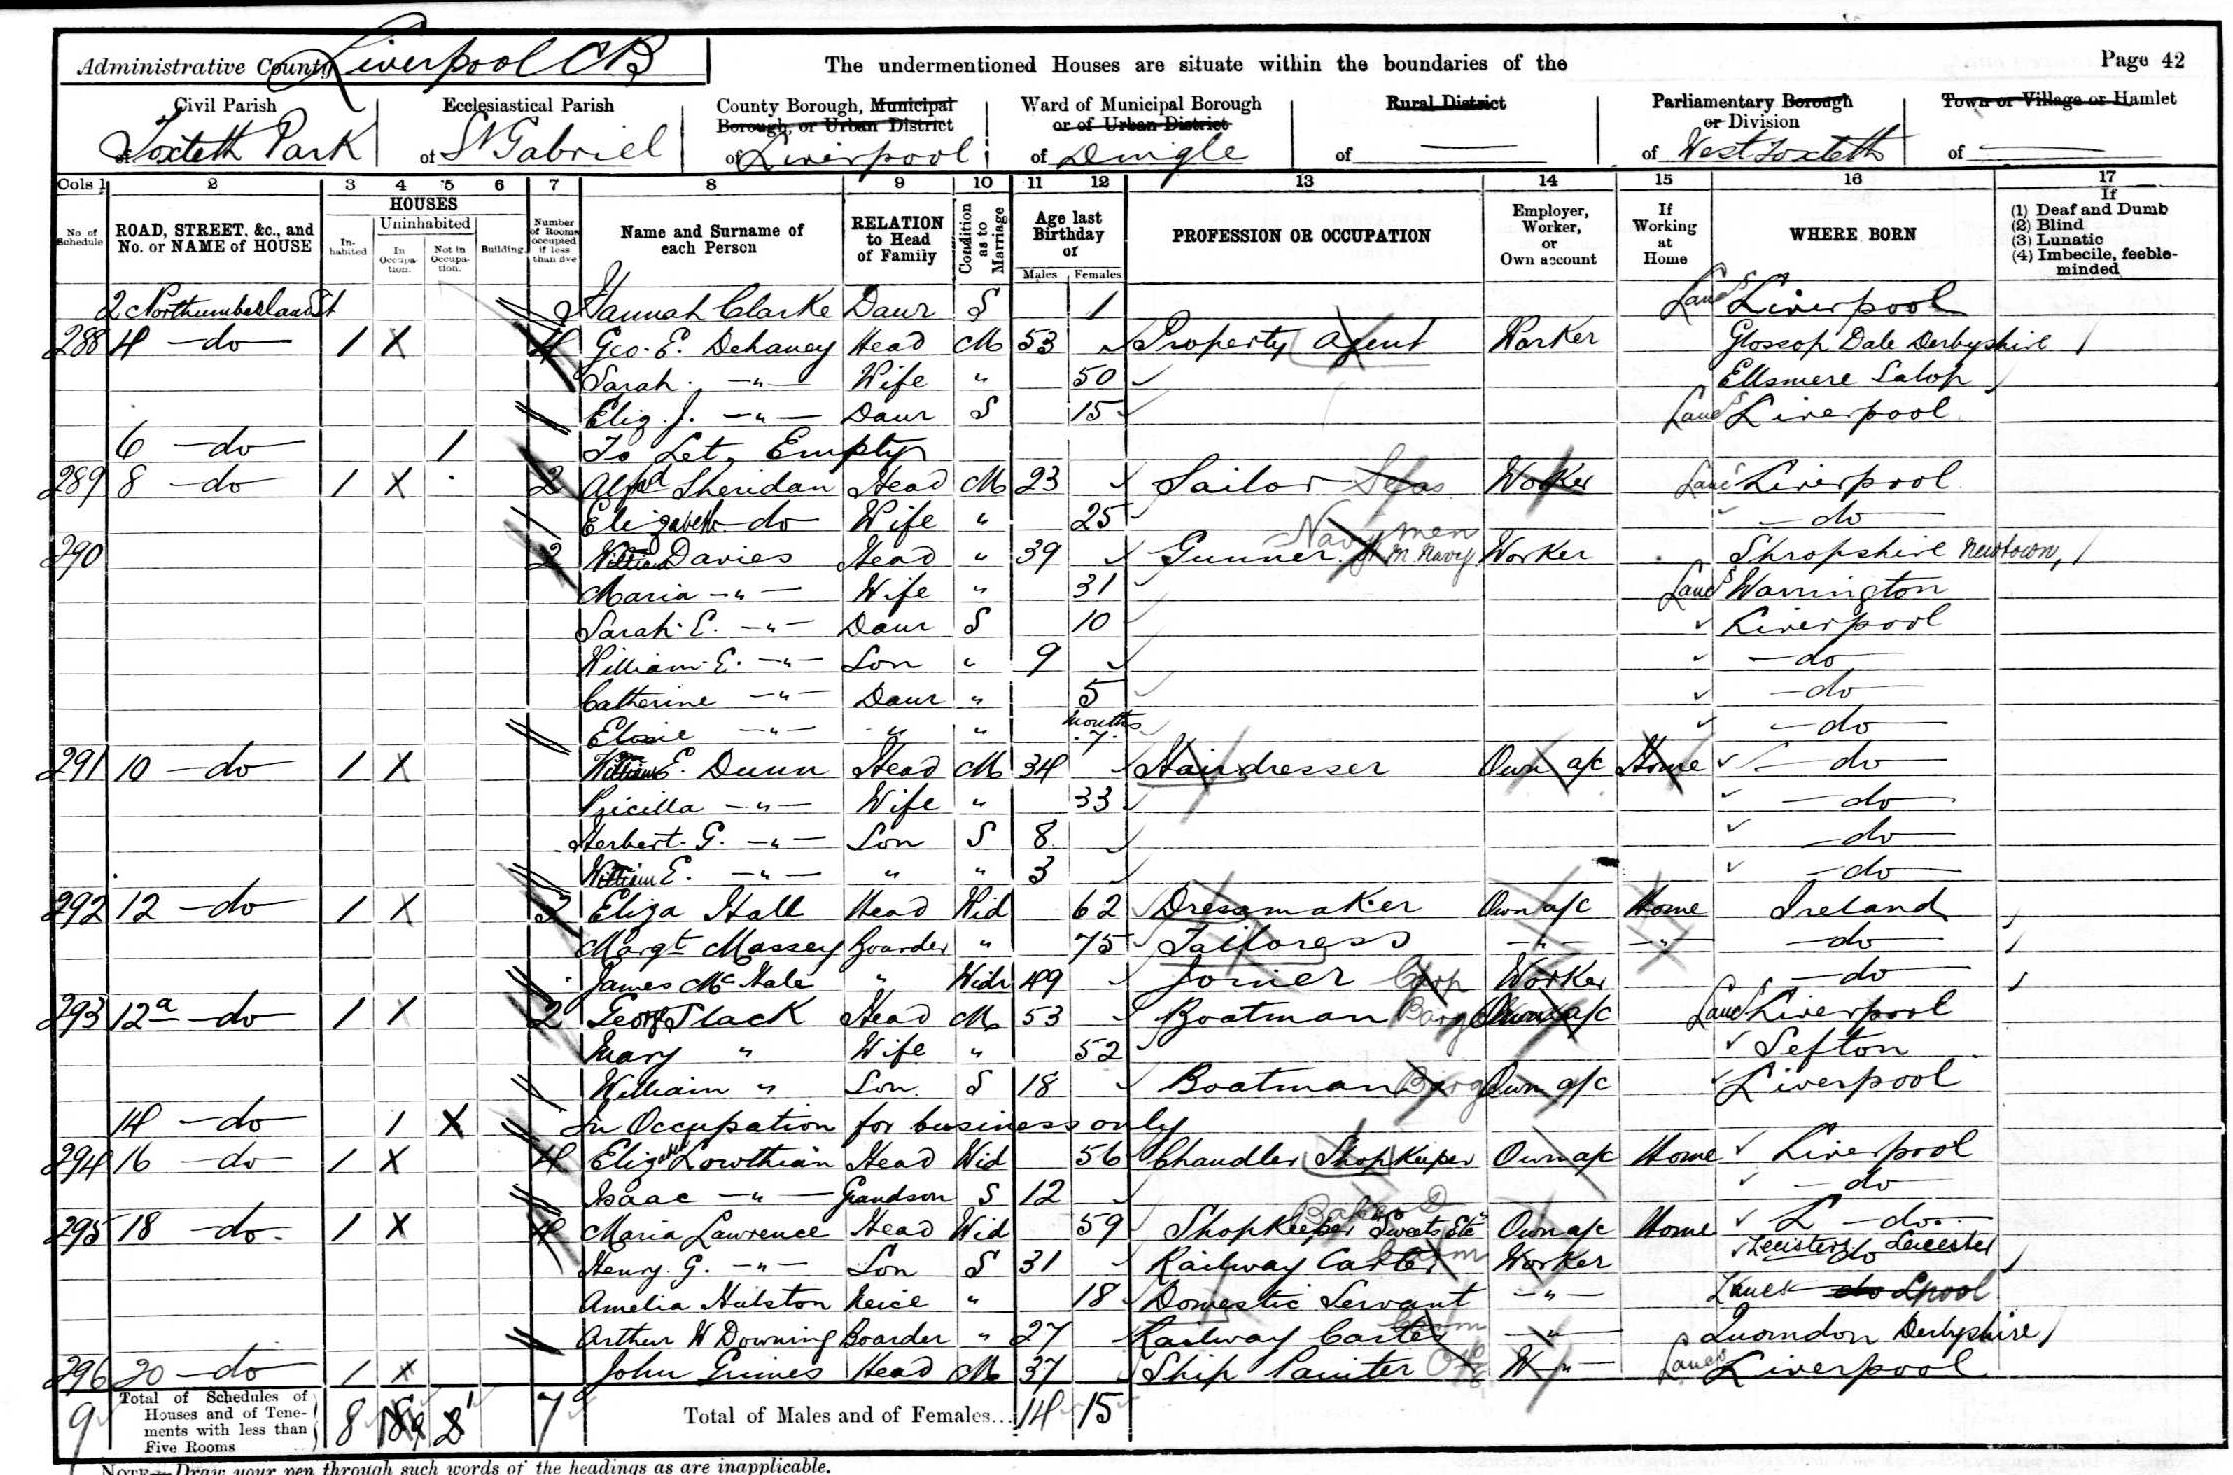 Administrative County Liverpool CB
The undermentioned Houses are situate within the boundaries of the
Page 42
Civil Parish
of Toxteth Park
Ecclesiastical Parish
of St Gabriel
County Borough, Municipal
Borough, or Urban District
of Liverpool
Ward of Municipal Borough
or of Urban District
of Dingle
Rural District
of —
Parliamentary Borough
or Division
of West Toxteth
Town or Village or Hamlet
of —
Cols 1 2 3 4 5 6 7 8 9 10 11 12 13 14 15 16 17
No. of Schedule
ROAD, STREET, &c., and No. or NAME of HOUSE
HOUSES
Inhabited
Uninhabited
In Occupation.
Not in Occupation.
Building
Number of Rooms occupied if less than five
Name and Surname of each Person
RELATION to Head of Family
Condition as to Marriage
Age last Birthday of
Males Females
PROFESSION OR OCCUPATION
Employer, Worker, or Own account
If Working at Home
WHERE BORN
If
(1) Deaf and Dumb
(2) Blind
(3) Lunatic
(4) Imbecile, feeble-minded
2 Northumberland St Hannah Clarke Daur S 1 Lancs Liverpool
288 4 —do— 1 X 4 Geo. E. Dehaney Head M 53 Property Agent Worker Glossop Dale Derbyshire
Sarah —"— Wife " 50 Ellsmere Salop
Eliz. J. —"— Daur S 15 Lancs Liverpool
6 —do— 1 To Let, Empty
289 8 —do— 1 X 2 Alfrd Sheridan Head M 23 Sailor Seas Worker Lanc Liverpool
Elizabeth do Wife " 25 —do—
Navy men
290 2 William Davies Head " 39 Gunner H M Navy Worker Shropshire Newtown,
Maria —"— Wife " 31 Lancs Warrington
Sarah E. —"— Daur S 10 Liverpool
William E. —"— Son " 9 —do—
Catherine —"— Daur " 5 —do—
months
—"— " " 7 —do—
291 10 —do— 1 X William E. Dunn Head M 34 Hairdresser Own a/c Home —do—
Pricilla —"— Wife " 33 —do—
Herbert G. —"— Son S 8 —do—
William E. —"— " " 3 —do—
292 12 —do— 1 X 3 Eliza Hall Head Wid 62 Dressmaker Own a/c Home Ireland
Margt Massey Boarder " 75 Tailoress —"— —"— —do—
James McHale " Widr 49 Joiner Carp Worker —do—
293 12a —do— 1 1 2 George Slack Head M 53 Boatman Barge Own a/c Lancs Liverpool
Mary " Wife " 52 Sefton
William " Son S 18 Boatman Barge Own a/c Liverpool
14 —do— 1 X In Occupation for business only
294 16 —do— 1 X 4 Elizabeth Lowthian Head Wid 56 Chandler Shopkeeper Own a/c Home Liverpool
Isaac —"— Grandson S 12 —do—
295 18 —do— 1 X 4 Maria Lawrence Head Wid 59 Shopkeeper Sweets Etc Own a/c Home L —do—
Henry. G. —"— Son S 31 Railway Carter Worker Leicester
Amelia Halston Neice " 18 Domestic Servant —"— Lanc do Lpool
Arthur W Downing Boarder " 27 Railway Carter —"— Quorndon Derbyshire
296 20 —do— 1 X John Grimes Head M 37 Ship Painter W —"— Lancs Liverpool
9 Total of Schedules of Houses and of Tenements with less than Five Rooms 8 7 Total of Males and of Females... 14 15
NOTE—Draw your pen through such words of the headings as are inapplicable.